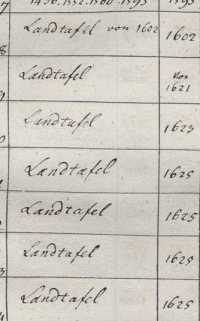 1602
8
Landtafel von 1602 1602
Landtafel von
1621
Landtafel 1623
Landtafel 1625
Landtafel 1625
Landtafel 1625
3
Landtafel 1625